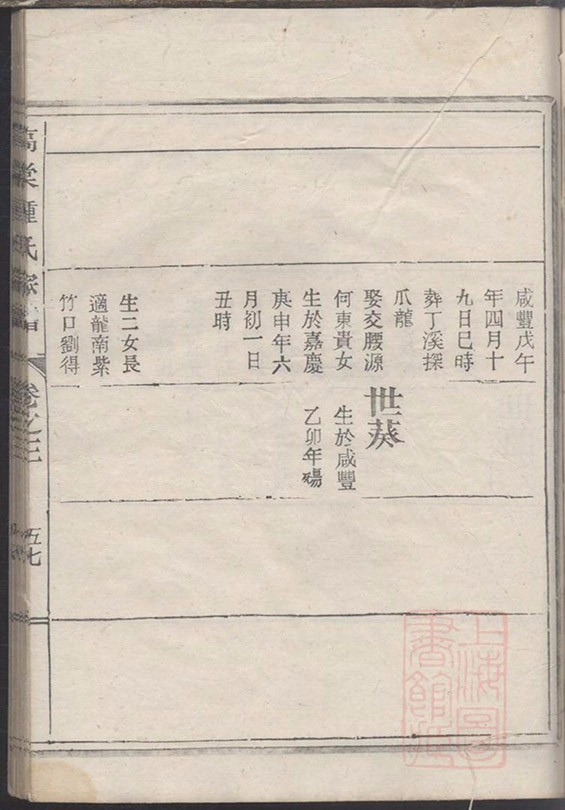 咸豐戊午
年四月十
九日巳時
葬丁溪探
爪龍
娶交腰源
何東貴女
生於嘉慶
庚申年六
月初一日
丑時
生二女長
適龍南紫
竹口劉得
世葵
生於咸豐
乙卯年殤
鍾氏
卷之三
五七
上海圖
書館藏